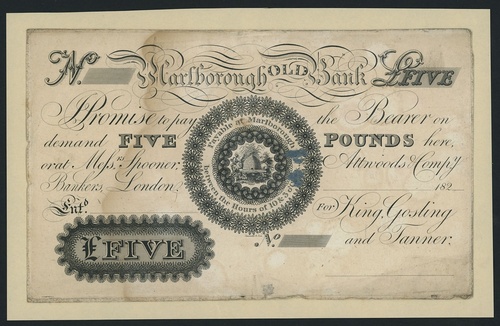 No Marlborough OLD Bank £FIVE
I Promise to pay the Bearer on
demand FIVE POUNDS here,
or at Mess.rs Spooner, Attwoods & Compy
Bankers, London. 182
Payable at Marlborough
between the Hours of 10 & 3 o'
Entd.
For King, Gosling
No and Tanner.
£FIVE